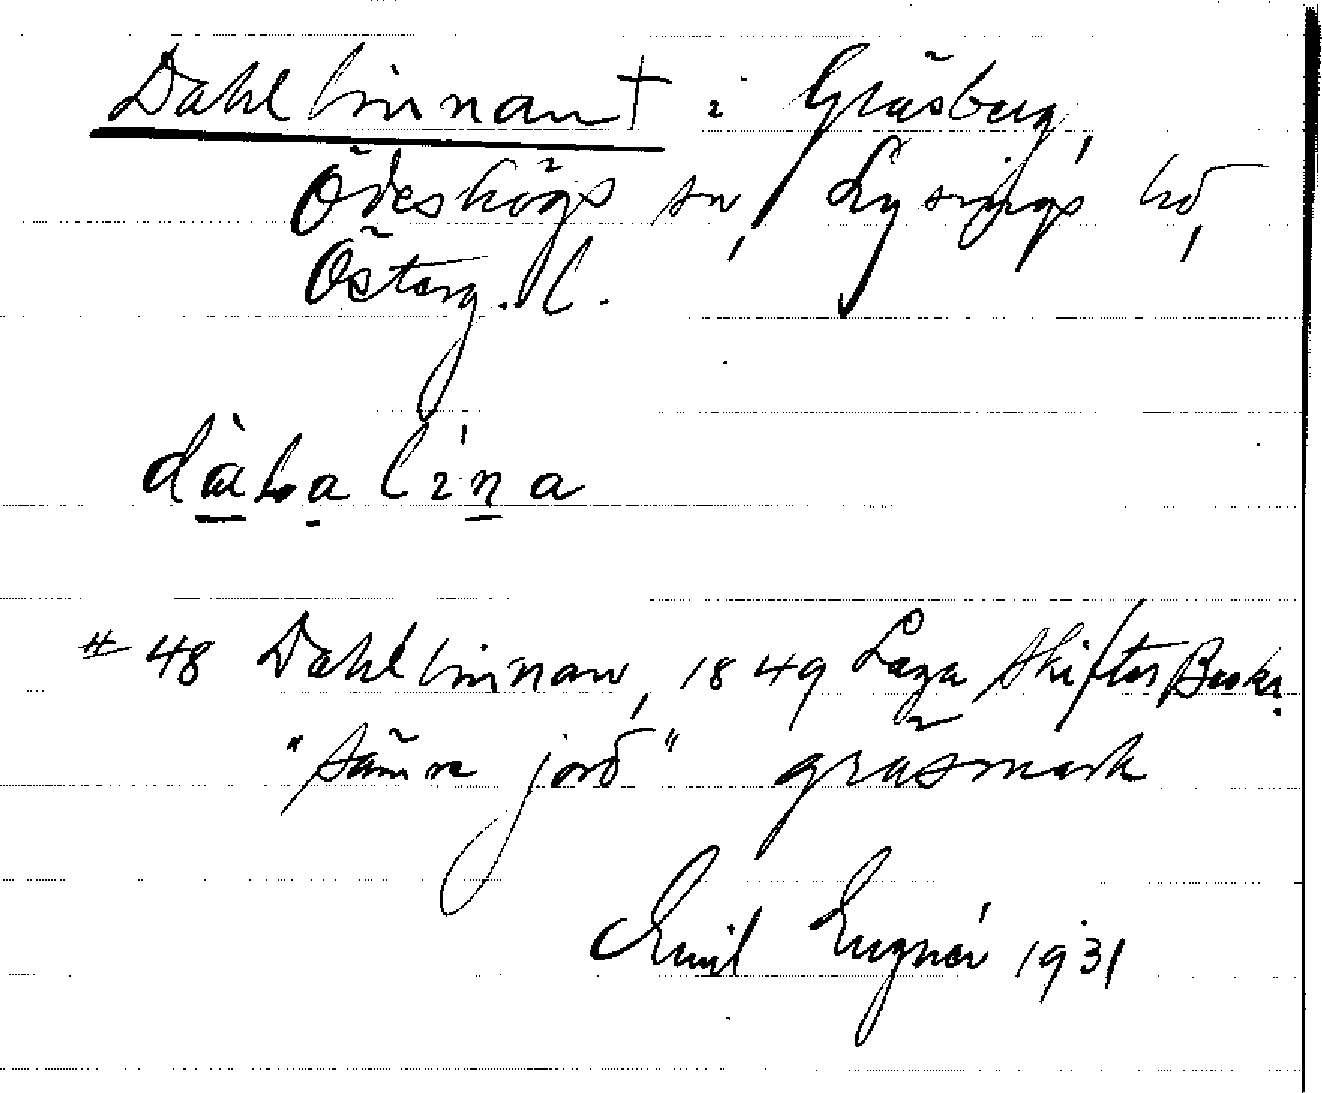 Dahllinnan† i Gräsberg,
Ödeshögs sn, Lysings hd,
Österg. l.
dàlalína
# 48 Dahllinnan, 1849 Laga Skiftes Beskr.
"sämre jord" gräsmark
Emil Lugnér 1931